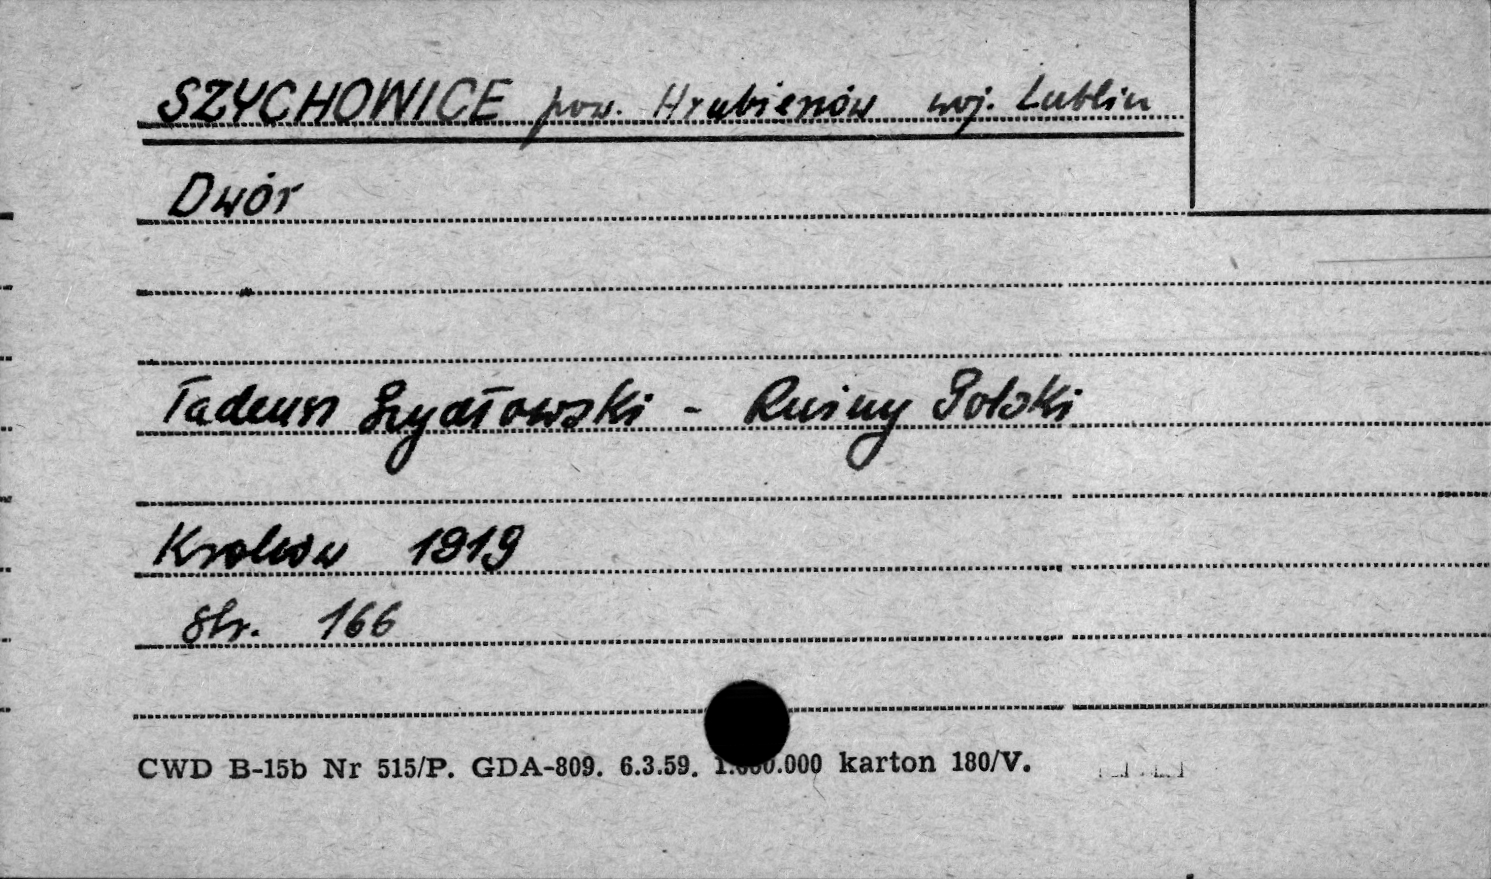 SZYCHOWICE pow. Hrubieszów woj. Lublin
Dwór
Tadeusz Szydłowski - Ruiny Polski
Kraków 1919
str. 166
CWD B-15b Nr 515/P. GDA-809. 6.3.59. 1.000.000 karton 180/V.